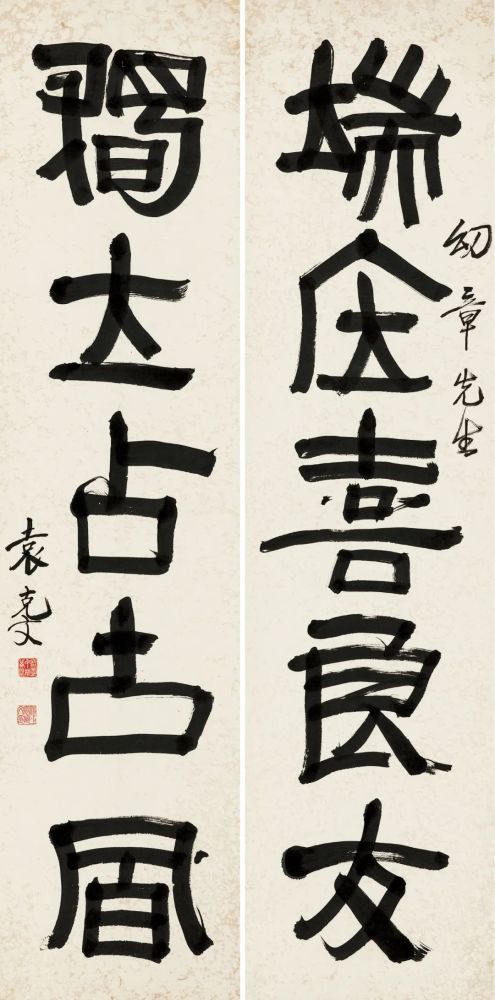 幼章先生
端居喜良友
獨立占古風
袁克文